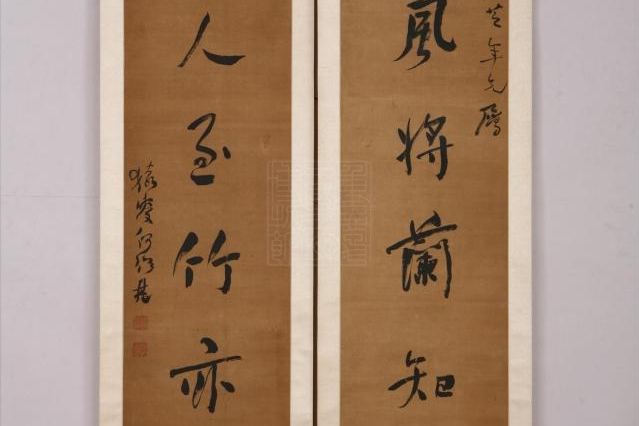 芝年兄屬
風將蘭知
人至竹亦
猨叟何紹基